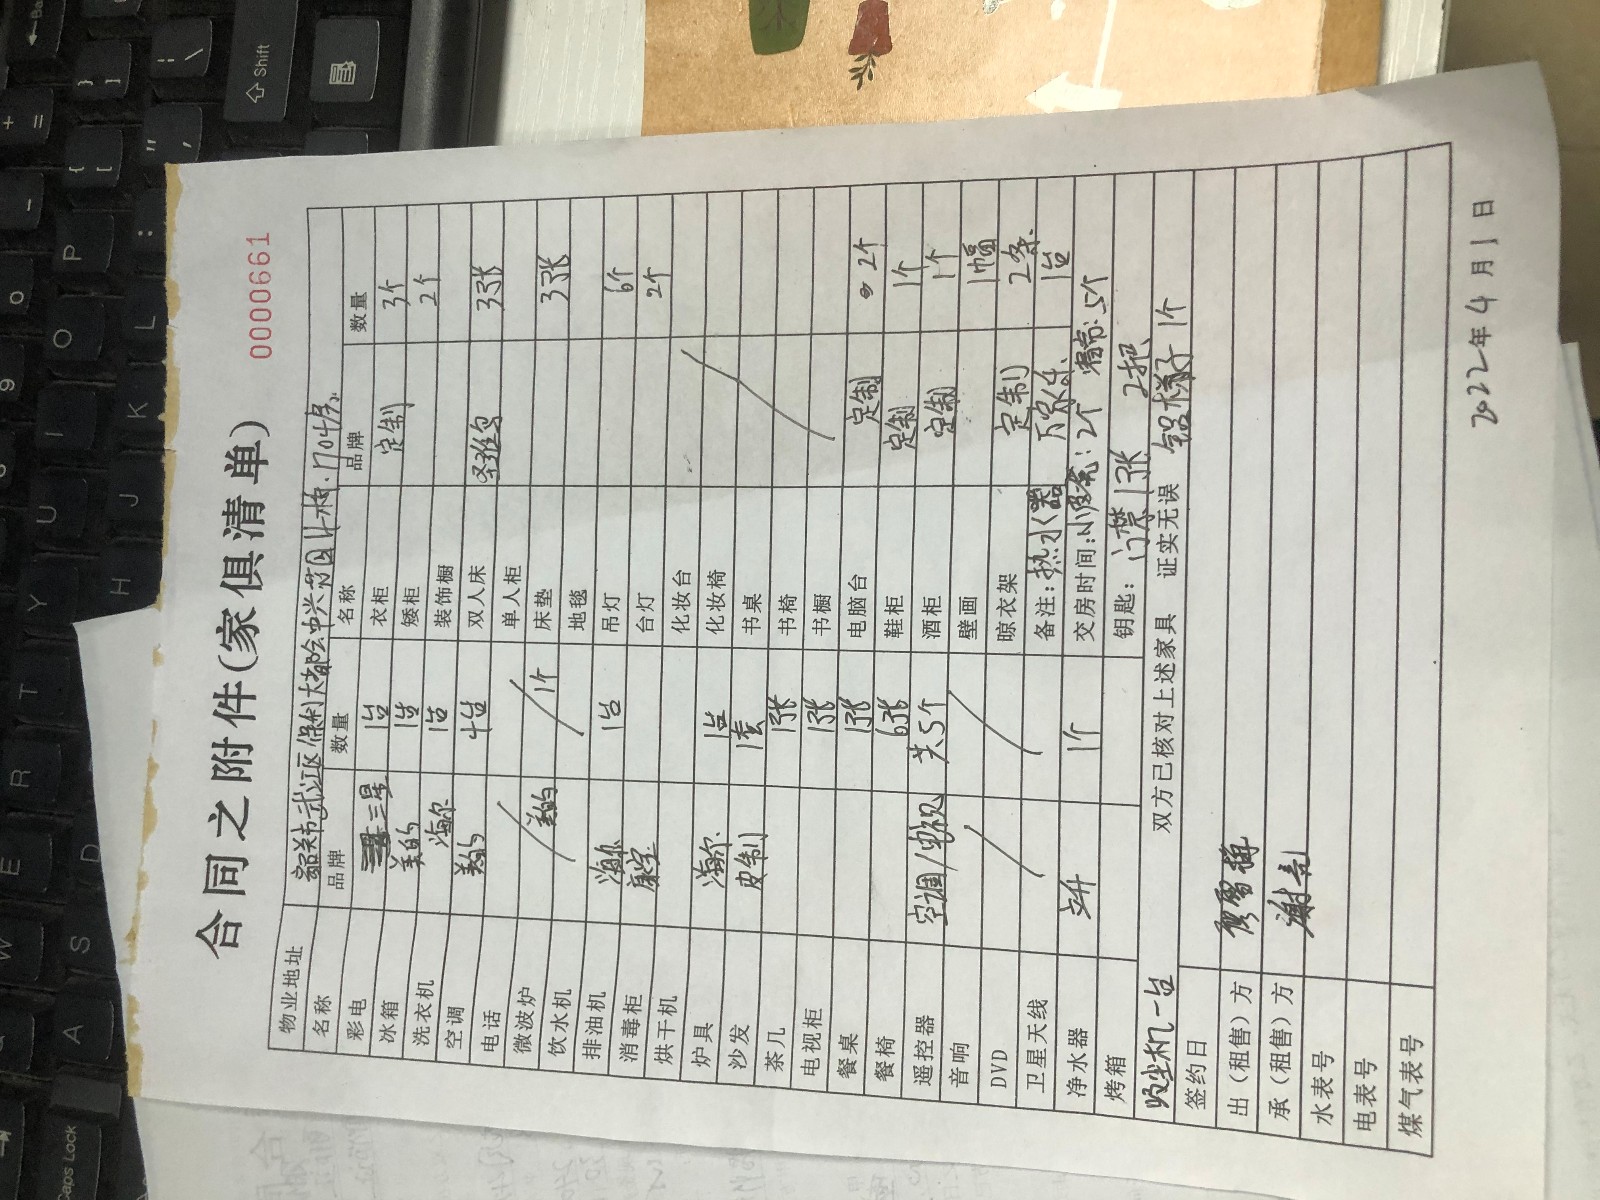 合同之附件(家俱清单) 0000661
物业地址 韶关市武江区保利大都会中兴花园 1704房
名称 品牌 数量 名称 品牌 数量
彩电 三星 1台 衣柜 定制 3个
冰箱 美的 1台 矮柜 2个
洗衣机 海尔 1台 装饰橱
空调 美的 4台 双人床 3张
电话 单人柜
微波炉 床垫 3张
饮水机 美的 1个 地毯
排油机 海尔 1台 吊灯 6个
消毒柜 康宝 台灯 2个
烘干机 化妆台
炉具 海尔 1台 化妆椅
沙发 皮制 1套 书桌
茶几 1张 书椅
电视柜 1张 书橱
餐桌 1张 电脑台 定制 2个
餐椅 6张 鞋柜 定制 1个
遥控器 空调/电视 共5个 酒柜 定制 1个
音响 壁画 1幅
DVD 晾衣架 定制 2条
卫星天线 备注: 热水器 万家乐 1台
净水器 1个 交房时间: 2个 窗帘:5个
烤箱 钥匙: 门禁1张 2把
吸尘机一台 双方已核对上述家具 证实无误 铝梯子1个
签约日
出(租售)方
承(租售)方
水表号
电表号
煤气表号
2022年4月1日
Caps Lock
A
S
D
H
J
K
L
:
W
E
R
T
Y
U
I
O
P
Shift